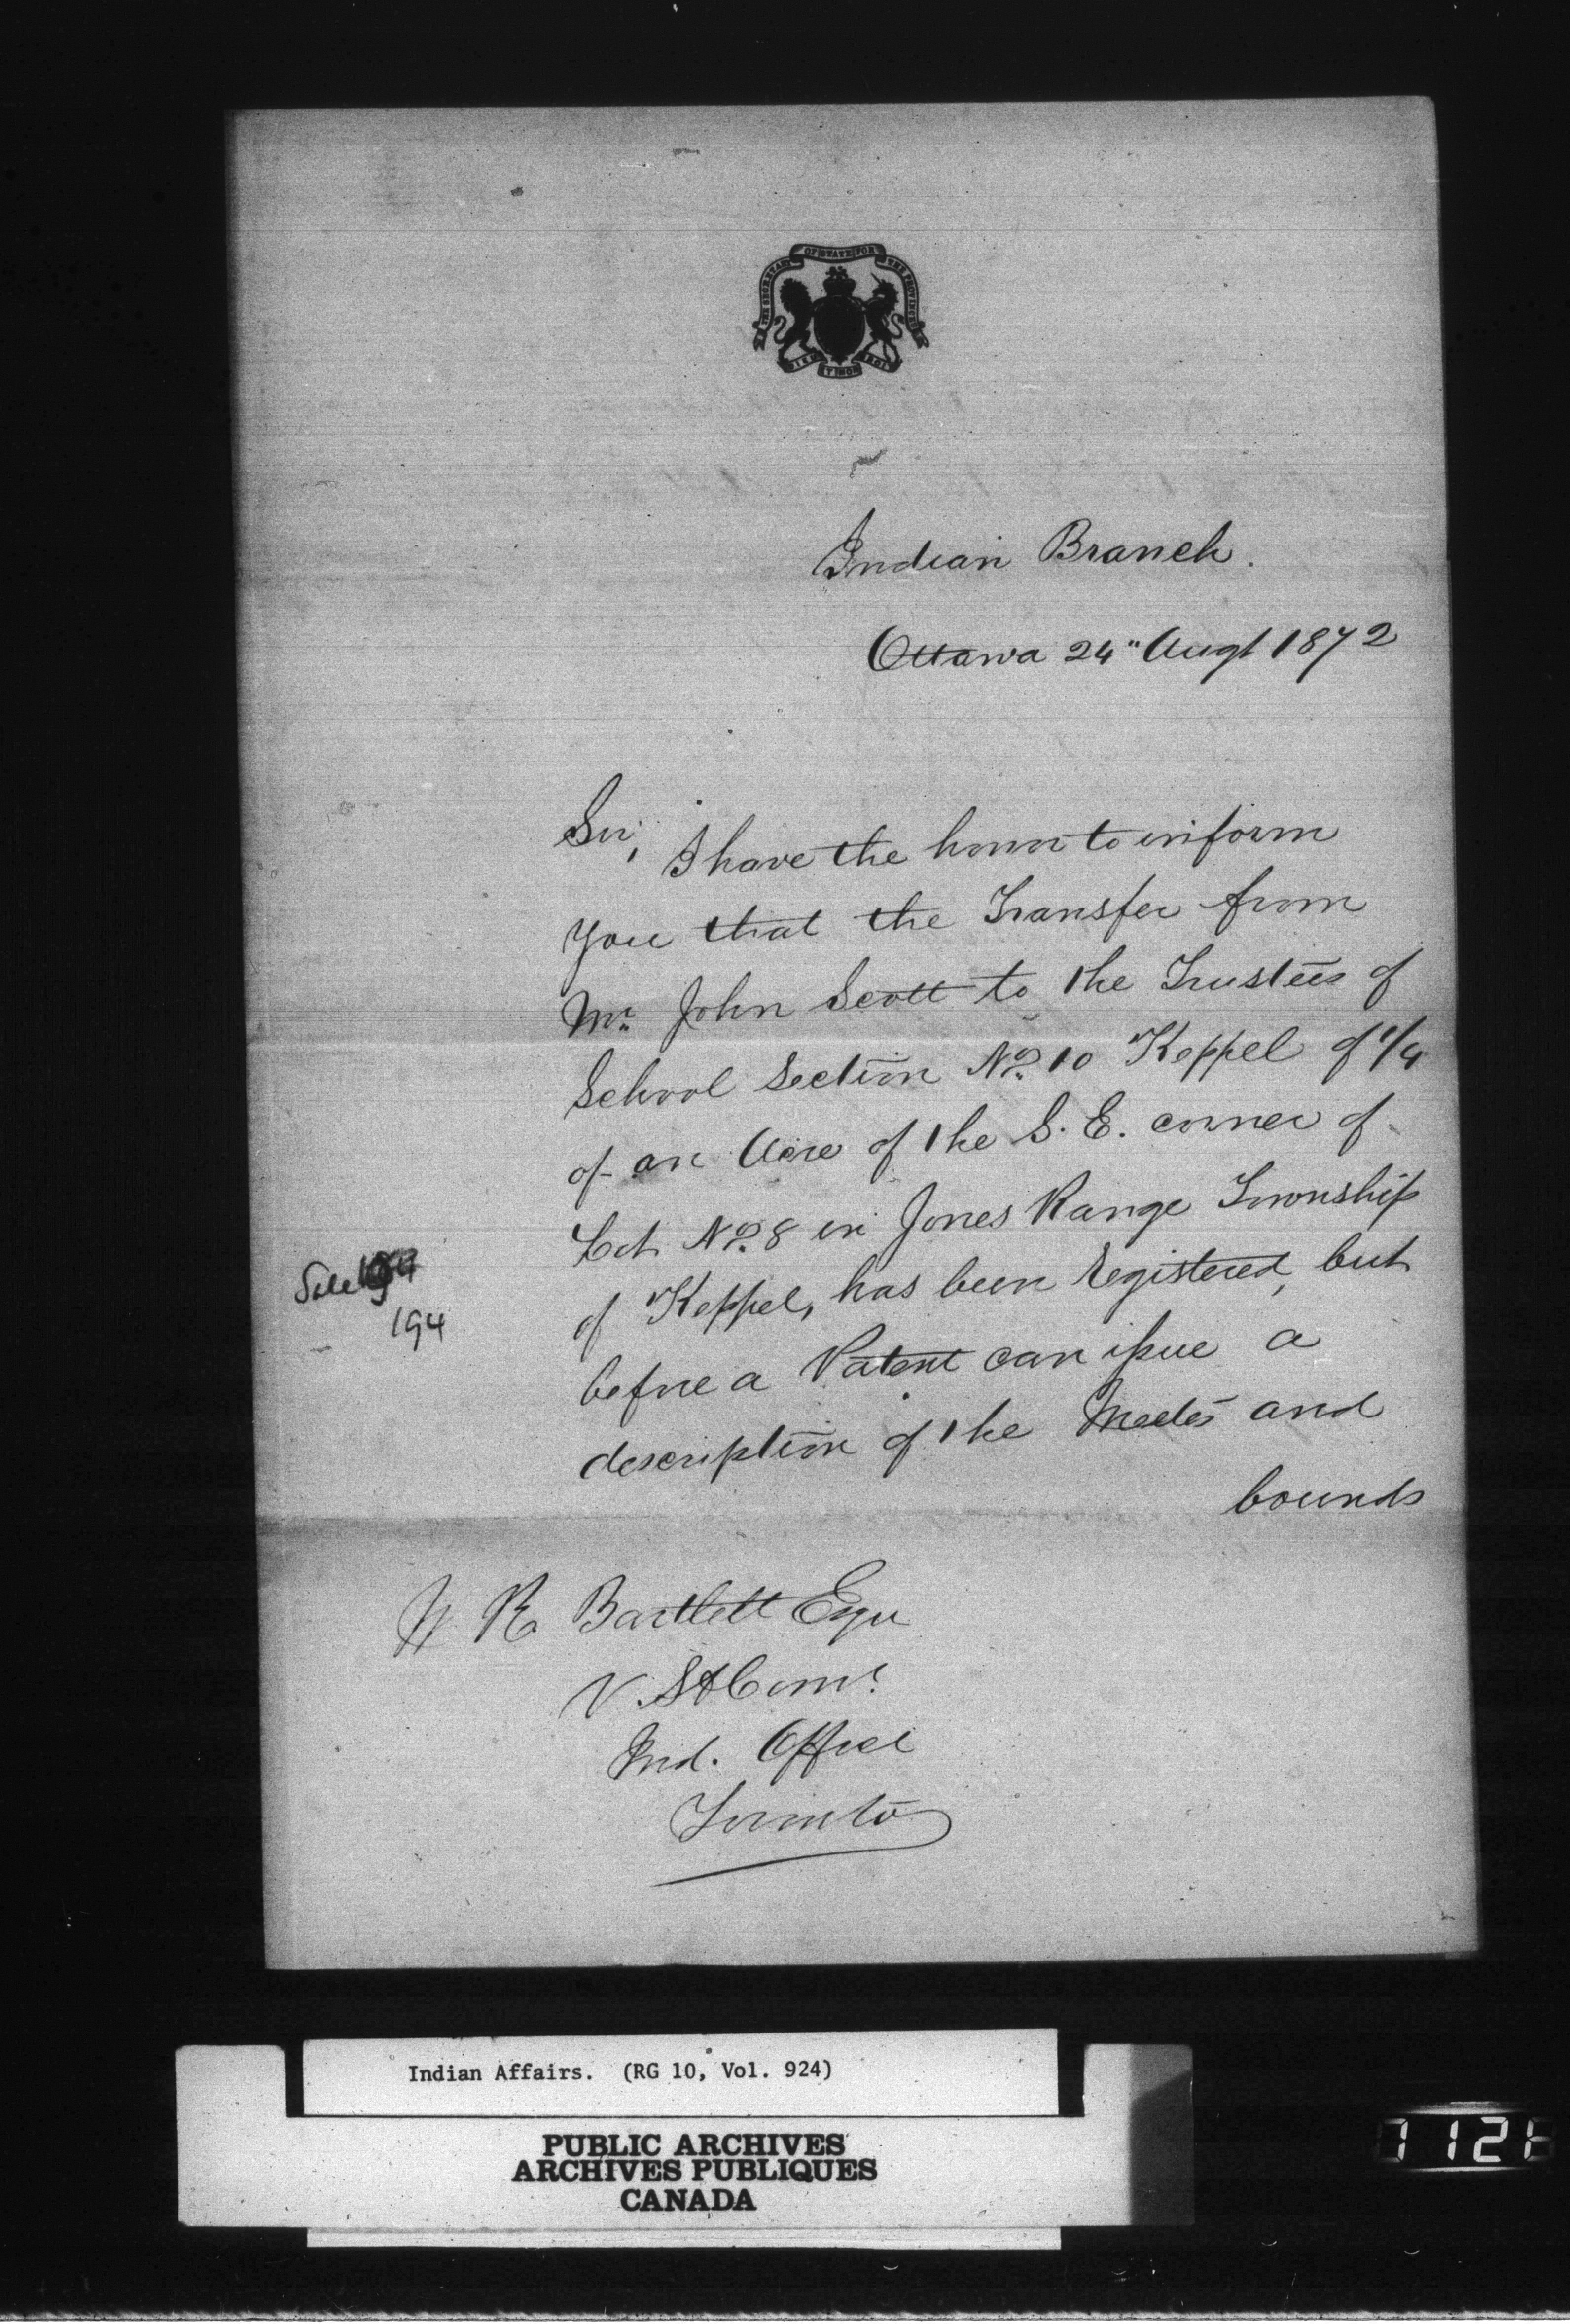 THE SECRETARY OF STATE FOR THE PROVINCES
DIEU ET MON DROIT
Indian Branch.
Ottawa 24" Augt 1872
Sir,
I have the honor to inform
you that the Transfer from
Mr. John Scott to the Trustees of
School Section No. 10 Keppel of 1/4
of an Acre of the S. E. corner of
Lot No. 8 in Jones Range Township
of Keppel, has been registered, but
before a Patent can issue a
description of the Meetes and
bounds
Sale
194
W R Bartlett Esqu
V. S & Comr.
Ind. Office
Toronto
Indian Affairs. (RG 10, Vol. 924)
PUBLIC ARCHIVES
ARCHIVES PUBLIQUES
CANADA